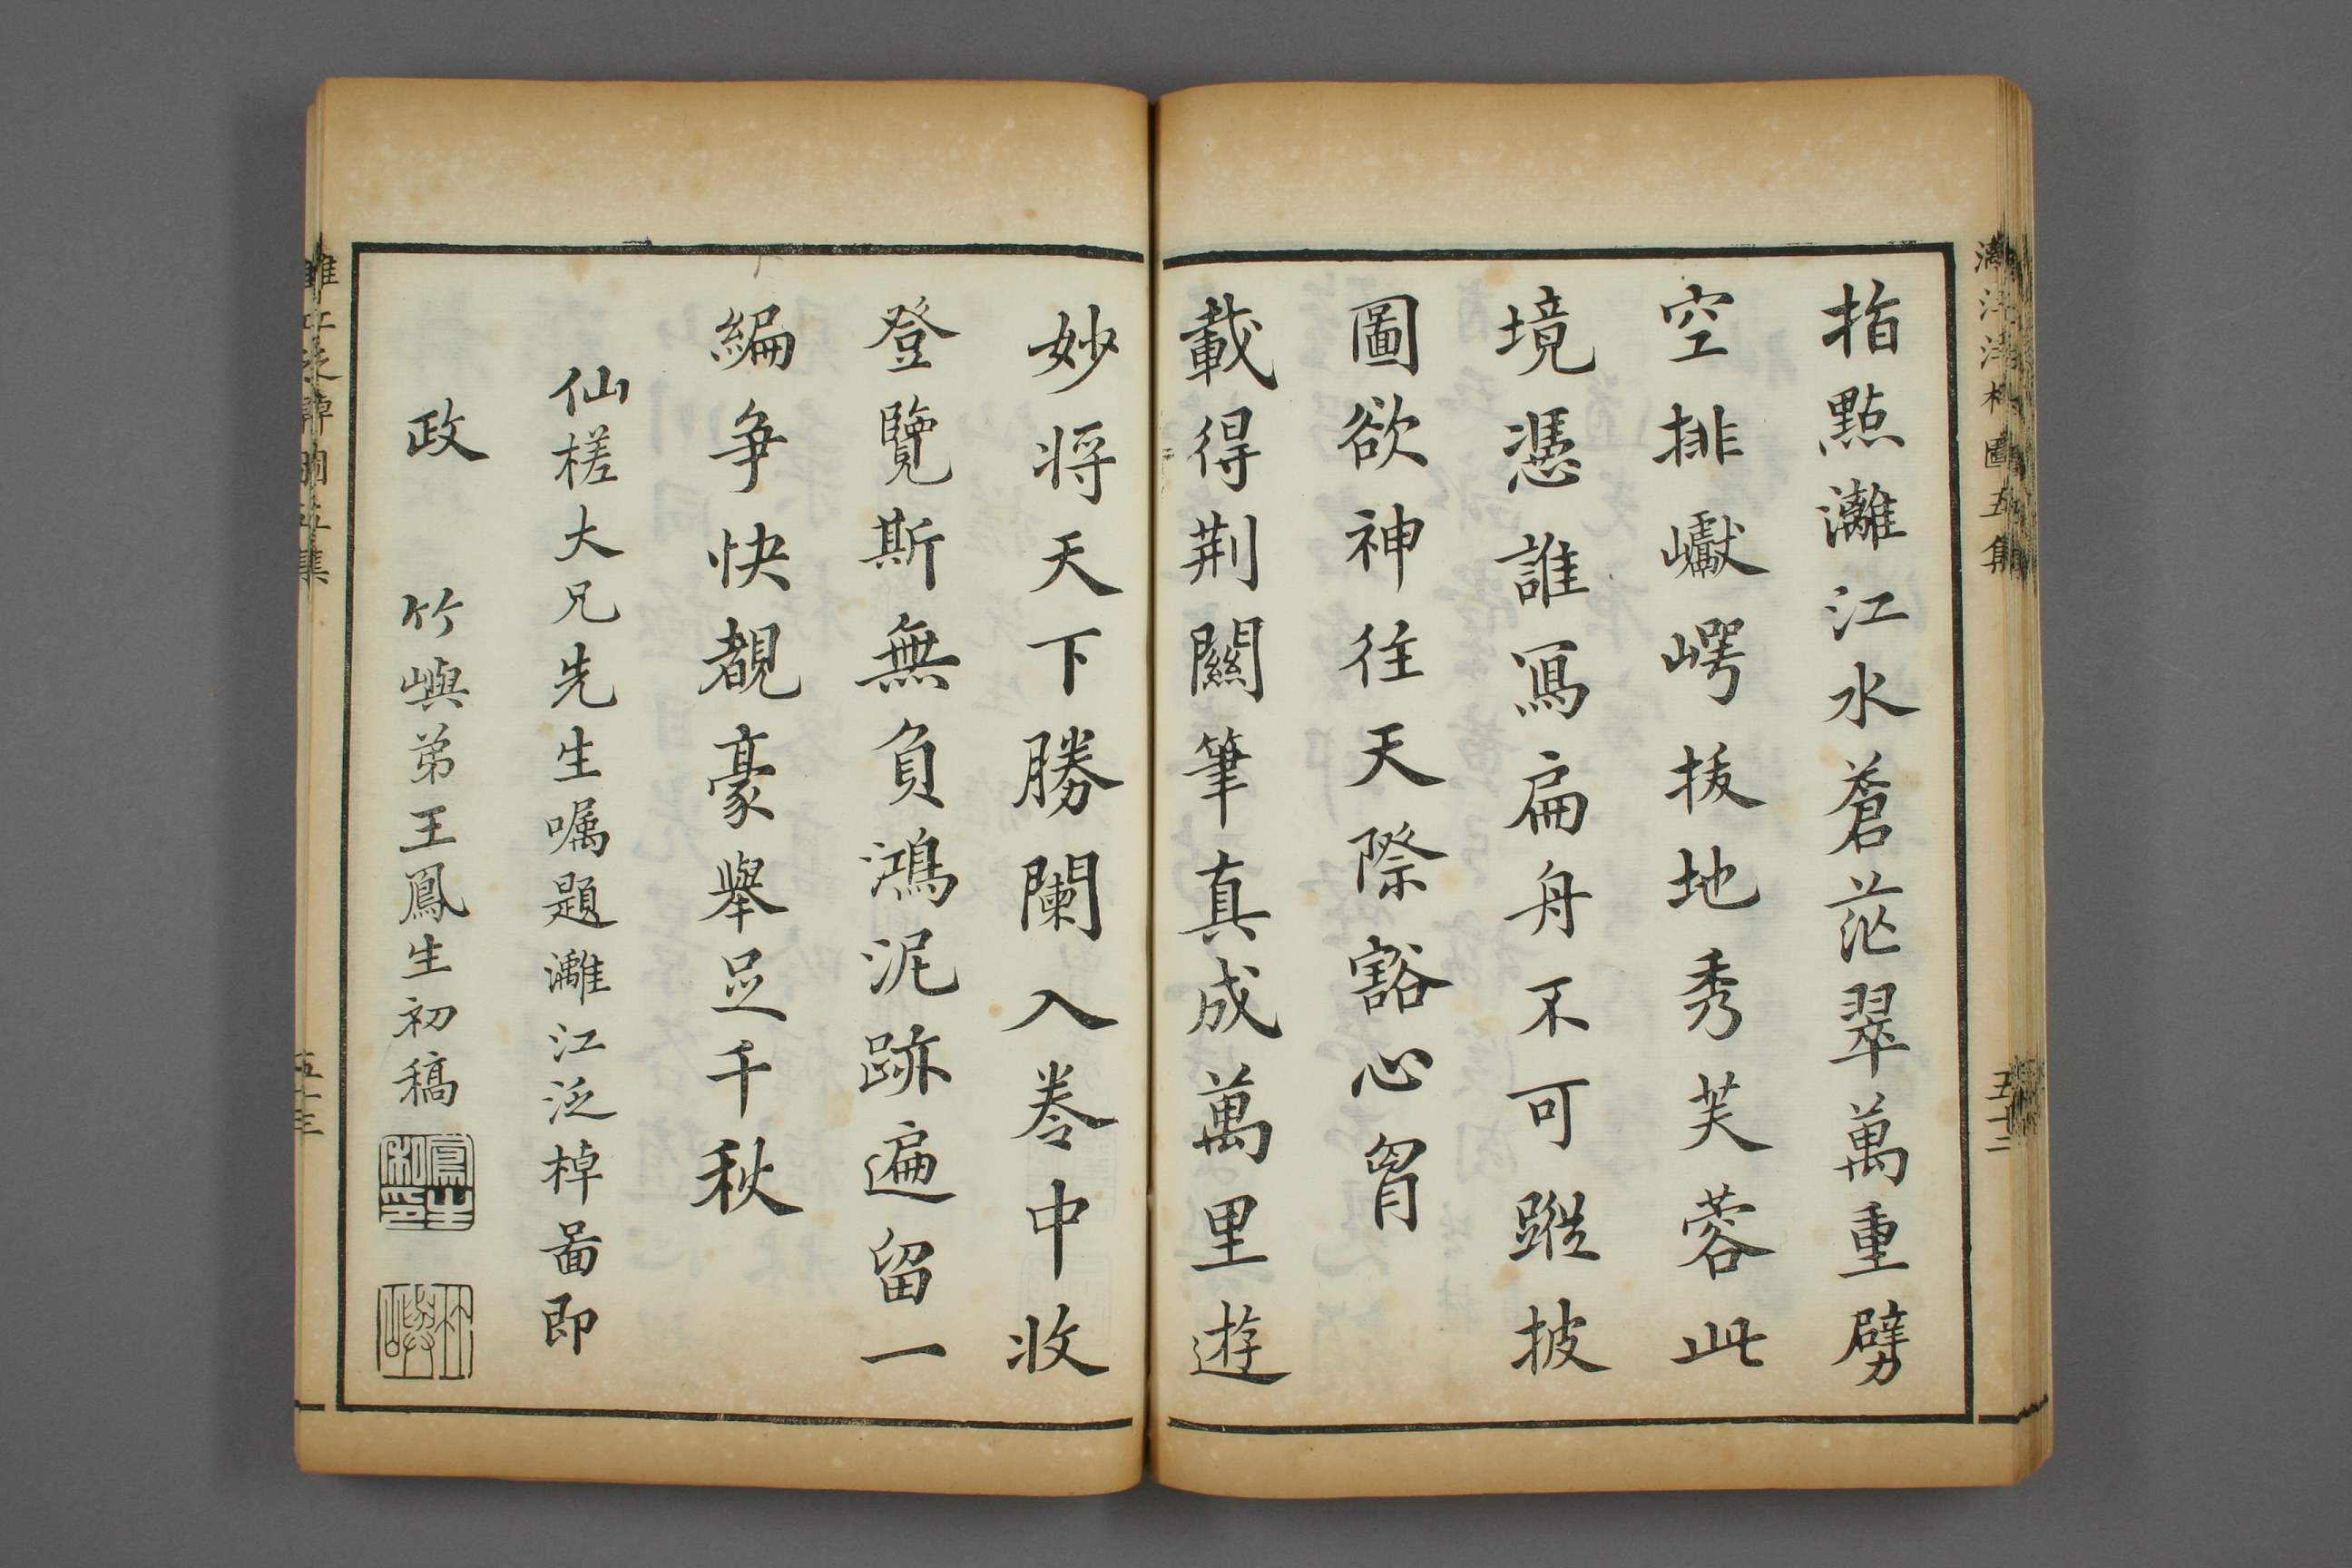 灕江泛棹圖五集
五十二
指點灕江水蒼茫翠萬重劈
空排巘崿拔地秀芙蓉此
境憑誰寫扁舟不可蹤披
圖欲神往天際豁心胷
載得荆關筆真成萬里遊
妙将天下勝闌入卷中收
登覽斯無負鴻泥跡遍留一
編争快覩豪舉足千秋
仙槎大兄先生嘱題灕江泛棹啚即
政
竹嶼弟王鳳生初稿
鳳生私印
竹嶼